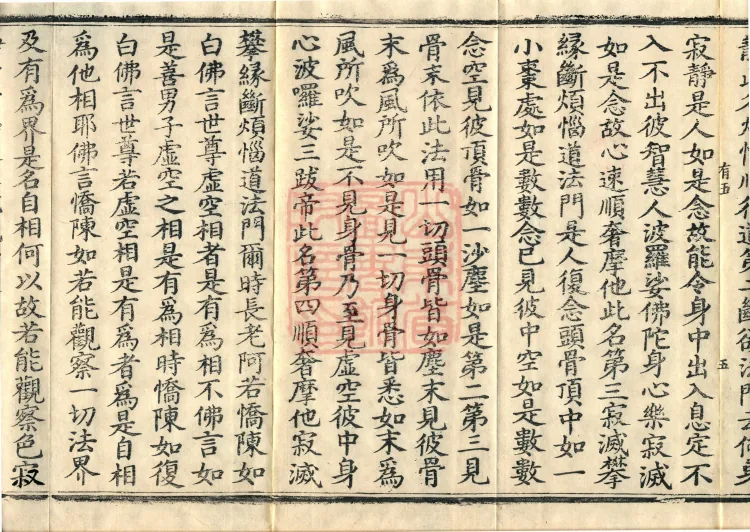 寂靜是人如是念故能令身中出入息定不
有五
五
入不出彼智慧人波羅娑佛陀身心樂寂滅
如是念故心速順奢摩他此名第三寂滅攀
緣斷煩惱道法門是人復念頭骨頂中如一
小棗處如是數數念已見彼中空如是數數
念空見彼頂骨如一沙塵如是第二第三見
骨末依此法用一切頭骨皆如塵末見彼骨
末為風所吹如是見一切身骨皆悉如末為
風所吹如是不見身骨乃至見虛空彼中身
心波囉娑三跋帝此名第四順奢摩他寂滅
攀緣斷煩惱道法門爾時長老阿若憍陳如
白佛言世尊虛空相者是有為相不佛言如
是善男子虛空之相是有為相時憍陳如復
白佛言世尊若虛空相是有為者為是自相
為他相耶佛言憍陳如若能觀察一切法界
及有為界是名自相何以故若能觀察色寂